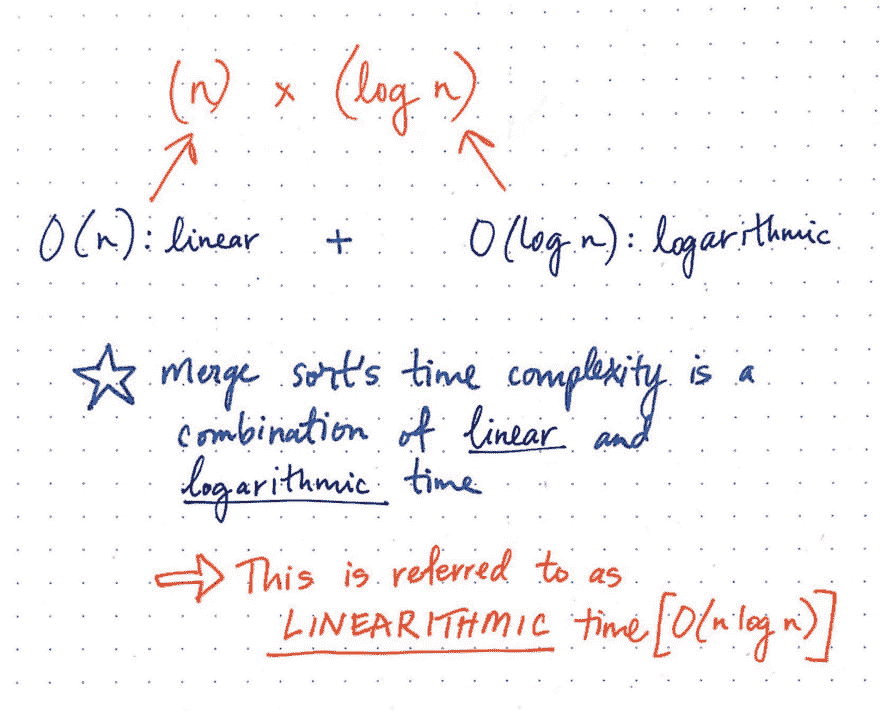 (n) × (log n)
O(n): linear + O(log n): logarithmic
☆ merge sort's time complexity is a
combination of linear and
logarithmic time
⇨ This is referred to as
LINEARITHMIC time [O(n log n)]